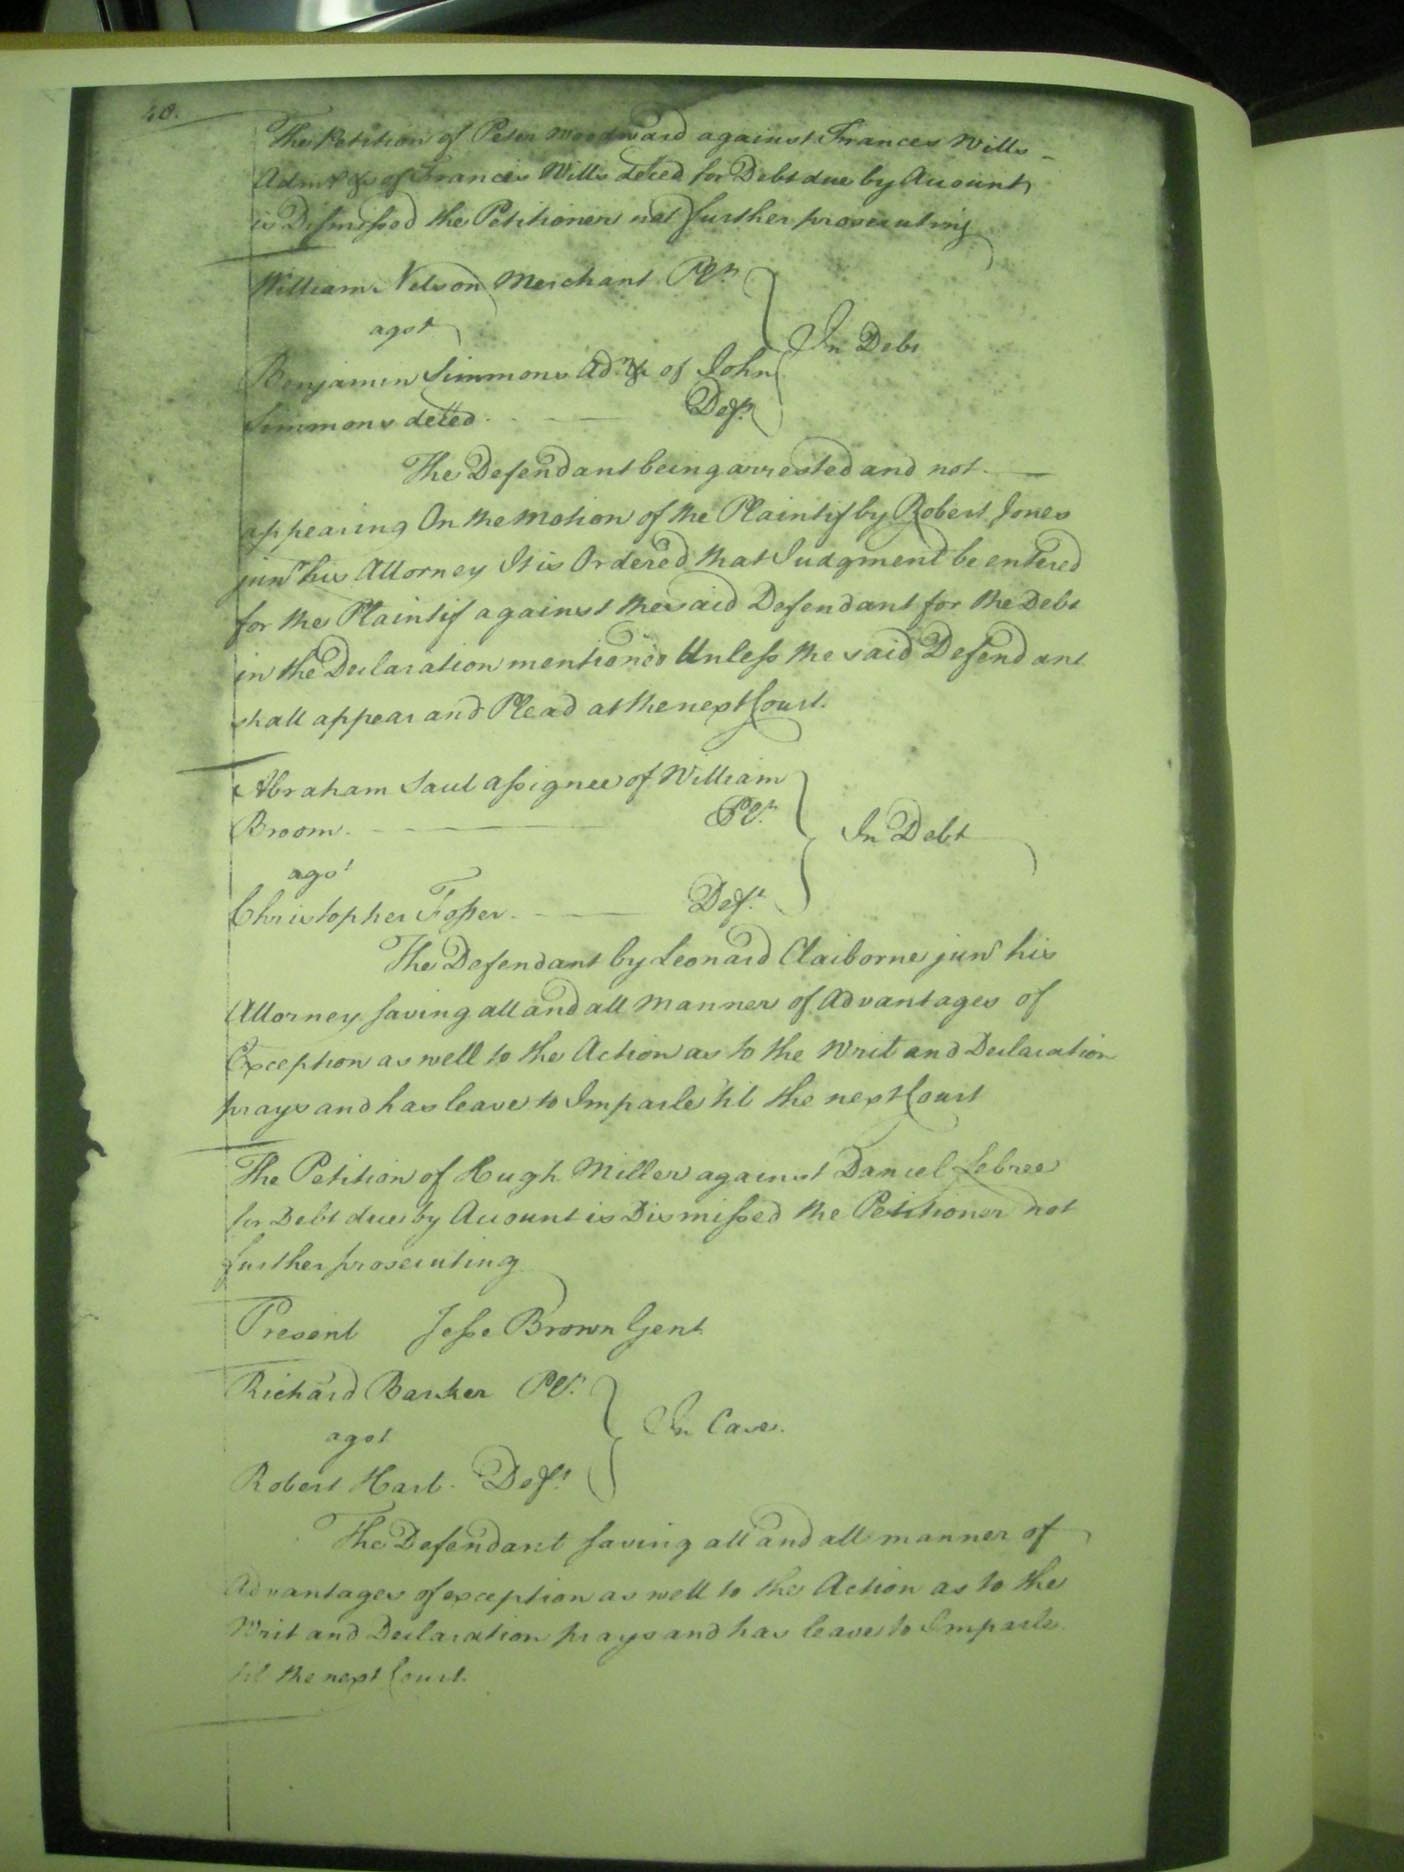 40.
The Petition of Peter Woodward against Frances Wills
Admx &c of Francis Wills deced for Debt due by Account
is Dismissed the Petitioner not further prosecuting
William Nelson Merchant Plt.
agst
In Debt
Benjamin Simmons Adr. &c of John
Simmons deced. Deft.
The Defendant being arrested and not
appearing On the Motion of the Plaintif by Robert Jones
junr his Attorney It is Ordered that Judgment be entered
for the Plaintif against the said Defendant for the Debt
in the Declaration mentioned Unless the said Defendant
shall appear and Plead at the next Court.
Abraham Saul assignee of William
Broom. Plt.
In Debt
agst
Christopher Deft.
The Defendant by Leonard Claiborne junr his
Attorney saving all and all Manner of Advantages of
Exception as well to the Action as to the Writ and Declaration
prays and has leave to Imparle til the next Court
The Petition of Hugh Miller against Daniel
for Debt due by Account is Dismissed the Petitioner not
further prosecuting
Present Jesse Brown Gent
Richard Barker Plt.
agst
In Case.
Robert Hart. Deft.
The Defendant saving all and all manner of
Advantages of exception as well to the Action as to the
Writ and Declaration prays and has leave to Imparle
til the next Court.